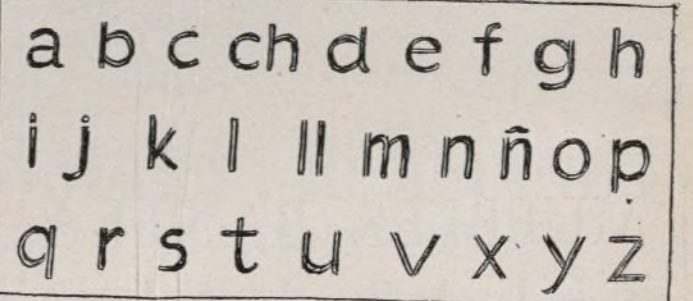 a b c ch d e f g h
i j k l ll m n ñ o p
q r s t u v x y z